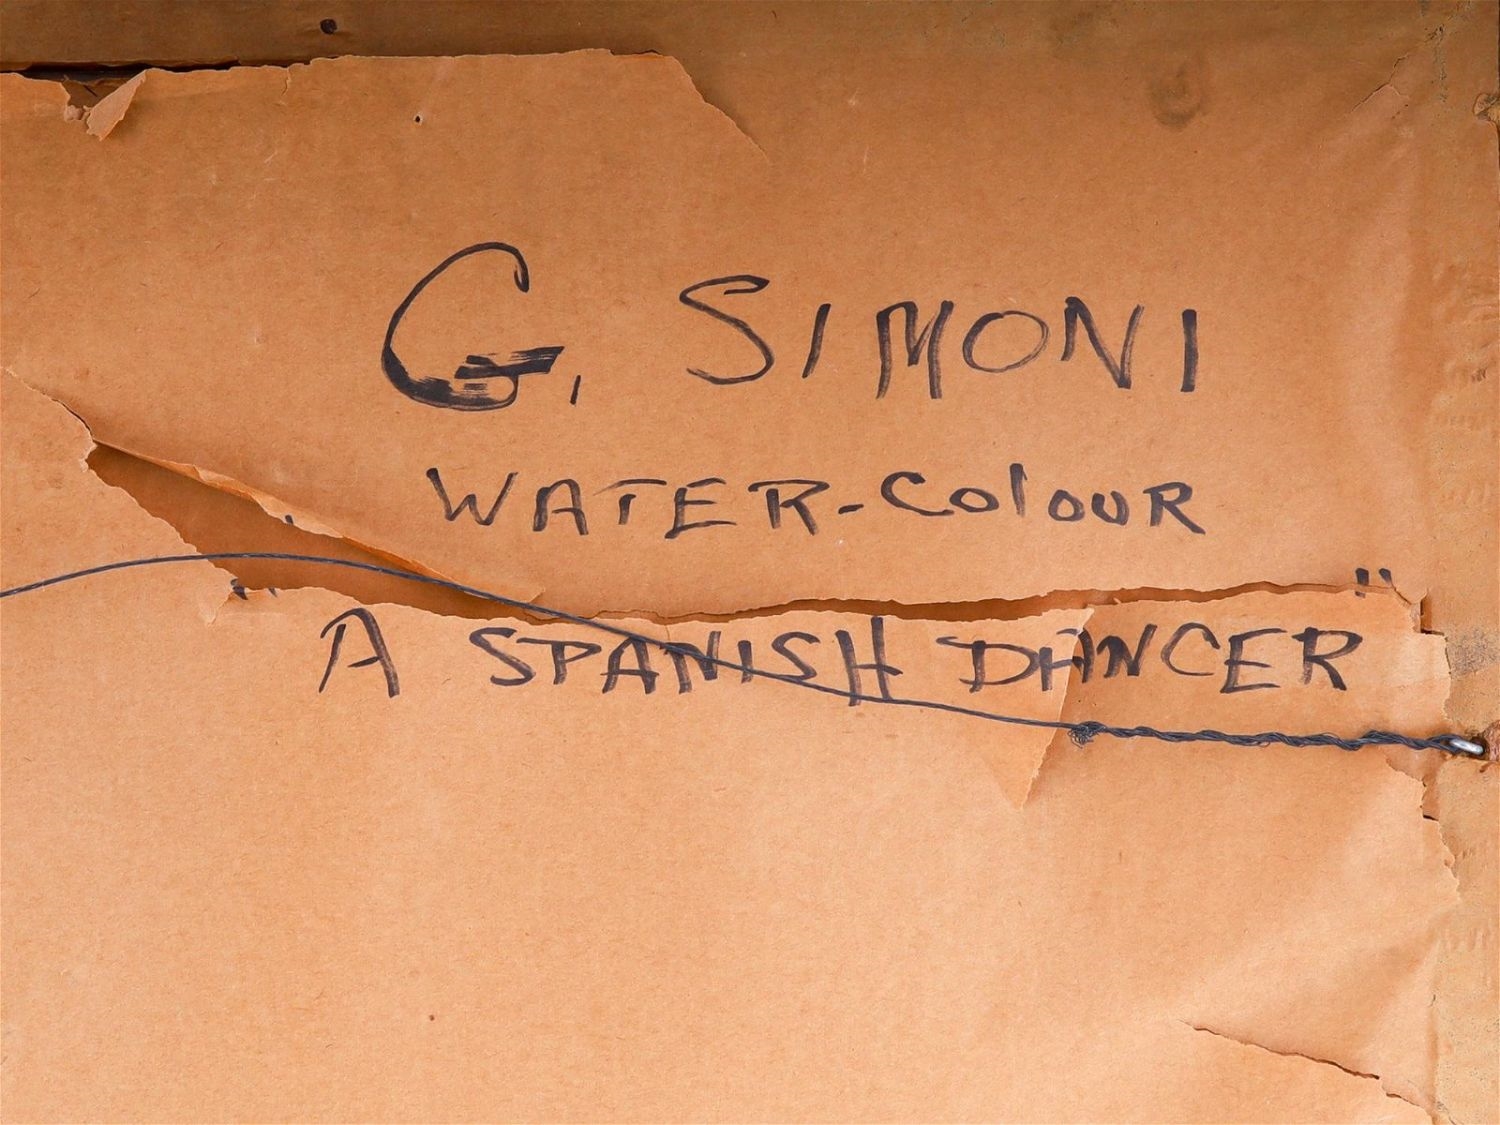 G. SIMONI
WATER-COlOUR
"A SPANISH DANCER"